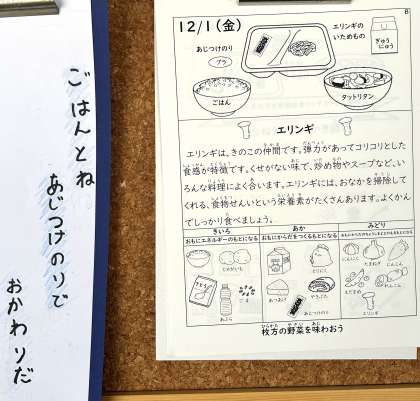 ごはんとね
あじつけのりで
おかわりだ
B
12/1(金)
エリンギの
いためもの
ぎゅう
にゅう
あじつけのり
プラ
ごはん
タットリタン
エリンギ
エリンギは、きのこの仲間です。弾力があってコリコリとした
食感が特徴です。くせがない味で、炒め物やスープなど、い
ろんな料理によく合います。エリンギには、おなかを掃除して
くれる、食物せんいという栄養素がたくさんあります。よくかん
でしっかり食べましょう。
きいろ
あか
みどり
おもにエネルギーのもとになる
おもにからだをつくるもとになる
おもにからだのちょうしをととのえるもとになる
じゃがいも
さとう
ごま
あぶら
とりにく
あつあげ
やきぶた
あじつけのり
にんにく
たまねぎ
にんじん
えだまめ
エリンギ
枚方の野菜を味わおう